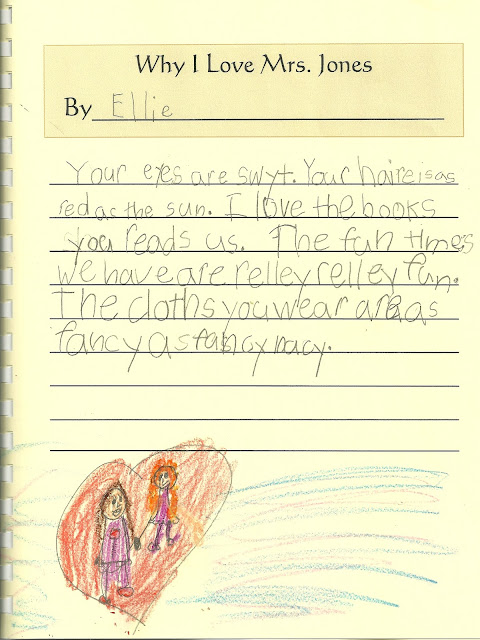 Why I Love Mrs. Jones
By Ellie
Your eyes are swyt. Your haire is as
red as the sun. I love the books
you reads us. The fun times
we have are relley relley fun.
The cloths you wear are as
fancy as fancy nacy.